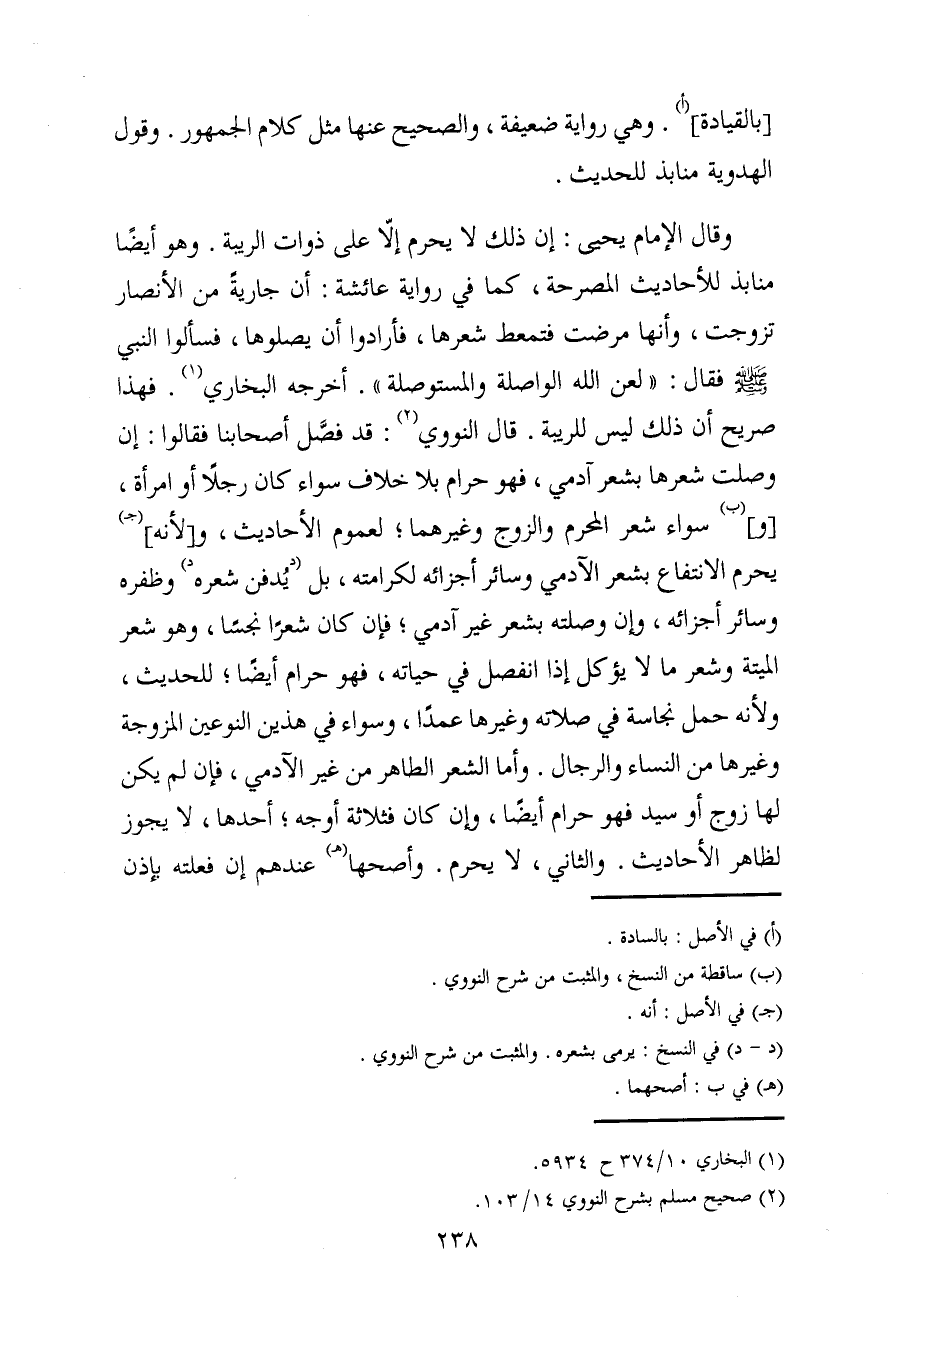 [بالقيادة](أ) . وهي رواية ضعيفة ، والصحيح عنها مثل كلام الجمهور . وقول
الهدوية منابذ للحديث .
وقال الإمام يحيى : إن ذلك لا يحرم إلّا على ذوات الريبة . وهو أيضًا
منابذ للأحاديث المصرحة ، كما في رواية عائشة : أن جاريةً من الأنصار
تزوجت ، وأنها مرضت فتمعط شعرها ، فأرادوا أن يصلوها ، فسألوا النبي
ﷺ فقال : « لعن الله الواصلة والمستوصلة » . أخرجه البخاري(١) . فهذا
صريح أن ذلك ليس للريبة . قال النووي(٢) : قد فصَّل أصحابنا فقالوا : إن
وصلت شعرها بشعر آدمي ، فهو حرام بلا خلاف سواء كان رجلًا أو امرأة ،
[و](ب) سواء شعر المحرم والزوج وغيرهما ؛ لعموم الأحاديث ، و[لأنه](جـ)
يحرم الانتفاع بشعر الآدمي وسائر أجزائه لكرامته ، بل (د يُدفن شعره د) وظفره
وسائر أجزائه ، وإن وصلته بشعر غير آدمي ؛ فإن كان شعرًا نجسًا ، وهو شعر
الميتة وشعر ما لا يؤكل إذا انفصل في حياته ، فهو حرام أيضًا ؛ للحديث ،
ولأنه حمل نجاسة في صلاته وغيرها عمدًا ، وسواء في هذين النوعين المزوجة
وغيرها من النساء والرجال . وأما الشعر الطاهر من غير الآدمي ، فإن لم يكن
لها زوج أو سيد فهو حرام أيضًا ، وإن كان فثلاثة أوجه ؛ أحدها ، لا يجوز
لظاهر الأحاديث . والثاني ، لا يحرم . وأصحها(هـ) عندهم إن فعلته بإذن
(أ) في الأصل : بالسادة .
(ب) ساقطة من النسخ ، والمثبت من شرح النووي .
(جـ) في الأصل : أنه .
(د - د) في النسخ : يرمى بشعره . والمثبت من شرح النووي .
(هـ) في ب : أصحهما .
(١) البخاري ٣٧٤/١٠ ح ٥٩٣٤.
(٢) صحيح مسلم بشرح النووي ١٠٣/١٤.
٢٣٨